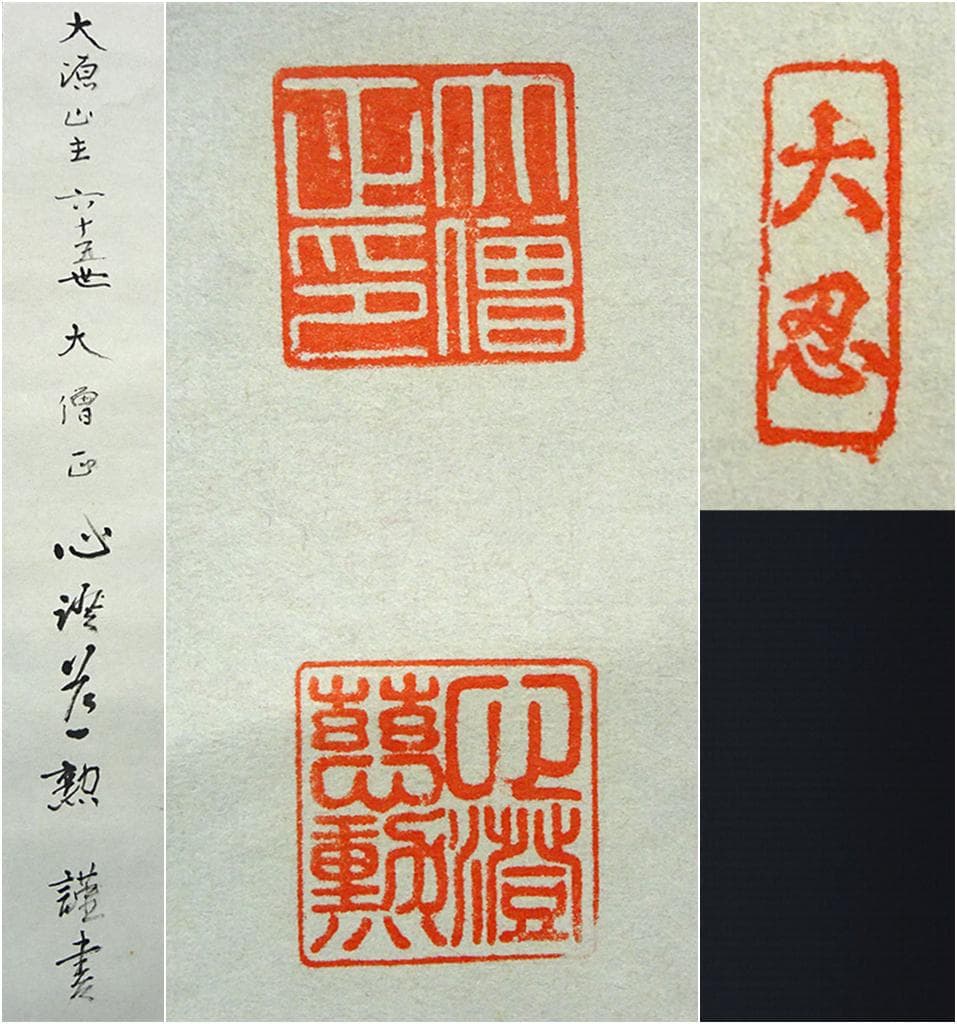 大源山主 六十五世 大僧正 心澄慈勲 謹書
大僧
正印
心澄
慈勲
大忍